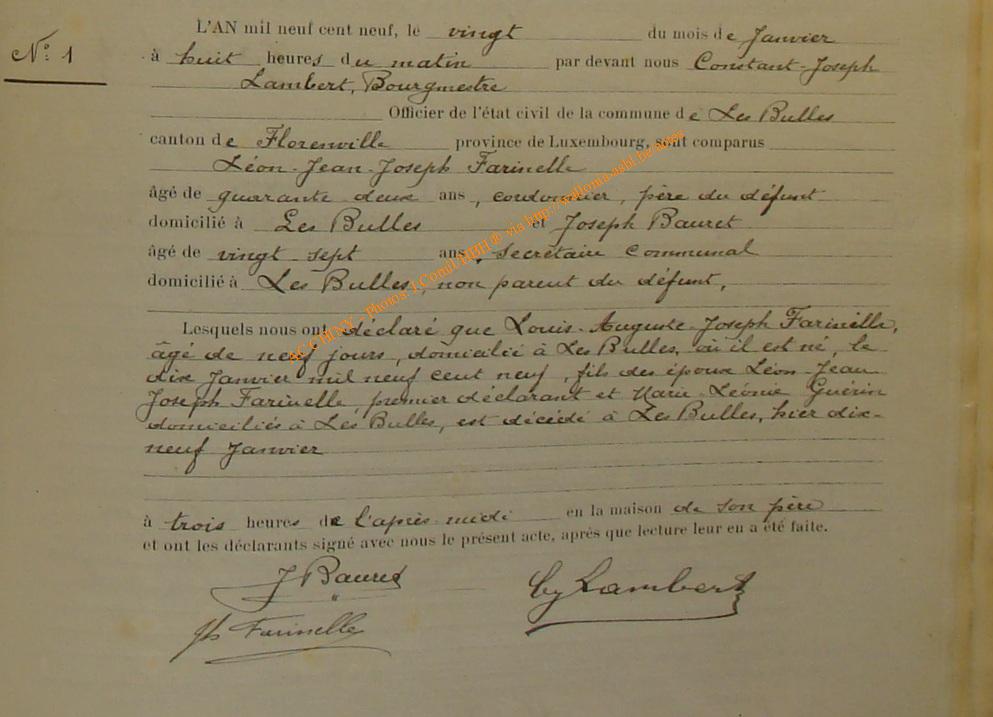 N° 1
L'AN mil neuf cent neuf, le vingt du mois de Janvier
à huit heures du matin par devant nous Constant-Joseph
Lambert, Bourgmestre
Officier de l'état civil de la commune de Les Bulles
canton de Florenville province de Luxembourg, sont comparus
Léon-Jean-Joseph Farinelle
âgé de quarante deux ans, cordonnier, père du défunt
domicilié à Les Bulles et Joseph Bauret
âgé de vingt sept ans, secrétaire communal
domicilié à Les Bulles, non parent du défunt,
Lesquels nous ont déclaré que Louis-Auguste-Joseph Farinelle,
âgé de neuf jours, domicilié à Les Bulles, où il est né, le
dix Janvier mil neuf cent neuf, fils des époux Léon-Jean
Joseph Farinelle, premier déclarant et Marie-Léonie Guérin
domiciliés à Les Bulles, est décédé à Les Bulles, hier dix-
neuf Janvier
à trois heures de l'après-midi en la maison de son père
et ont les déclarants signé avec nous le présent acte, après que lecture leur en a été faite.
J Bauret
Lambert
Farinelle
ACCHINY - Photos via http://